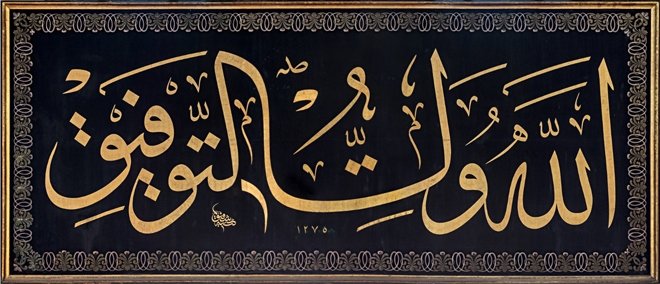 اللّٰهُ وَلِىُّ التَّوْفِيقِ
١٢٧٥